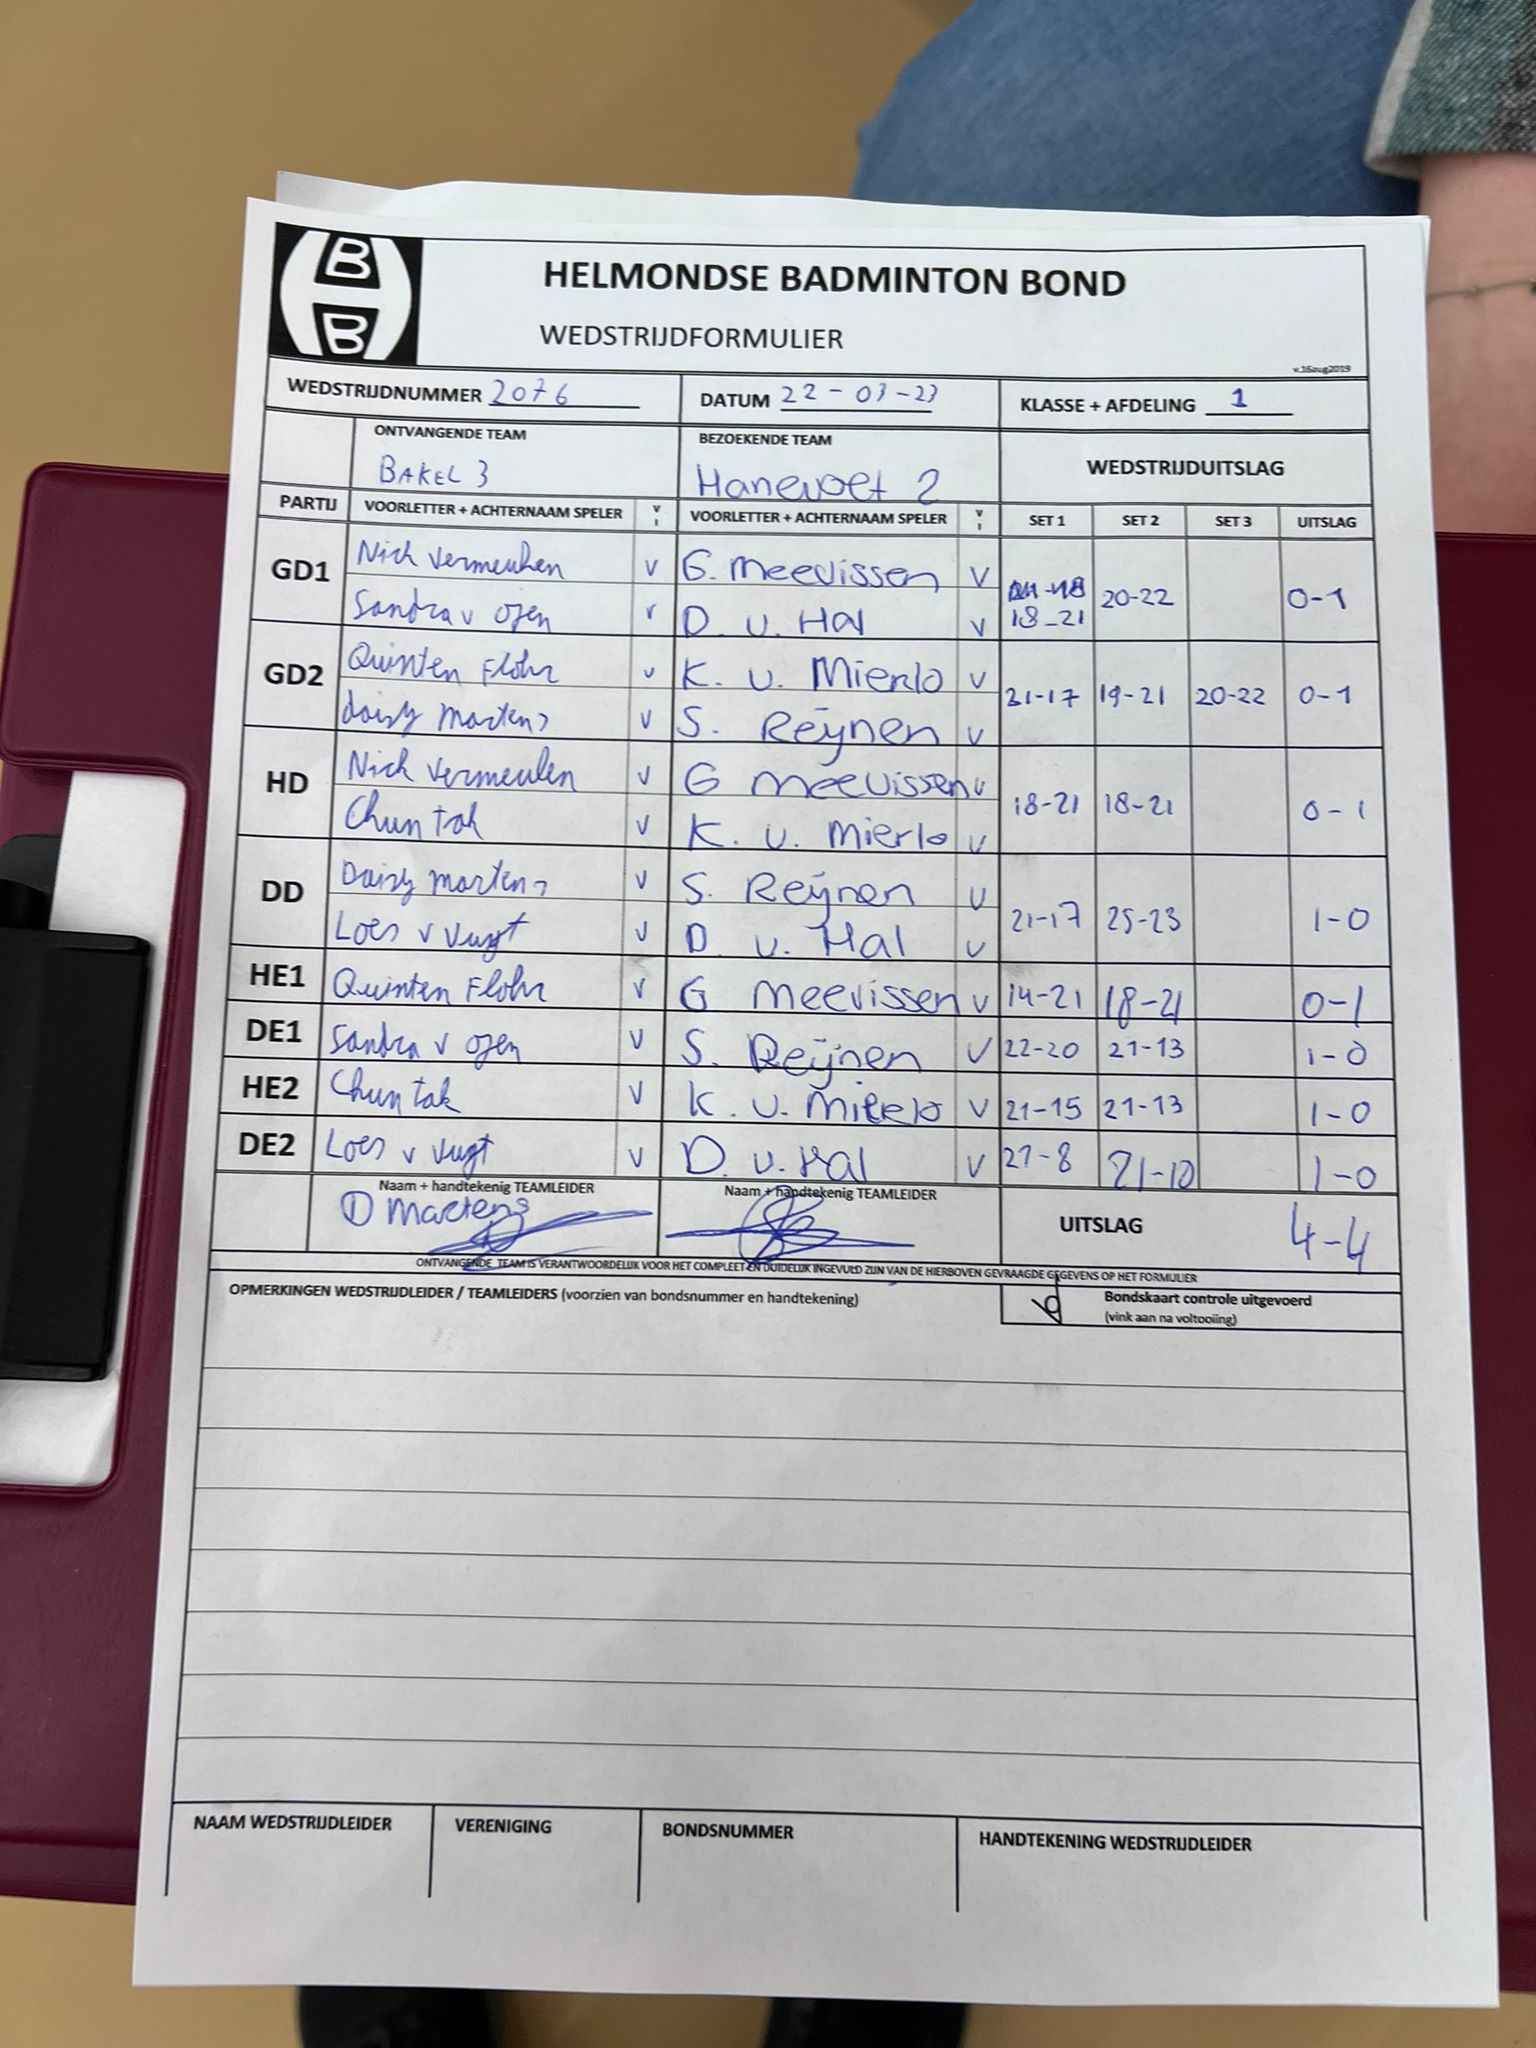 B
B
HELMONDSE BADMINTON BOND
WEDSTRIJDFORMULIER
v.16aug2019
WEDSTRIJDNUMMER 2076 DATUM 22-03-23 KLASSE + AFDELING 1
ONTVANGENDE TEAM BEZOEKENDE TEAM WEDSTRIJDUITSLAG
BAKEL 3 Hanevoet 2
PARTIJ VOORLETTER + ACHTERNAAM SPELER V I VOORLETTER + ACHTERNAAM SPELER V I SET 1 SET 2 SET 3 UITSLAG
GD1 Nick Vermeulen v G. Meevissen v 18-21 20-22 0-1
Sandra v Ojen v D. v. Hal v
GD2 Quinten Flohr v K. v. Mierlo v 21-17 19-21 20-22 0-1
Daisy Martens v S. Reijnen v
HD Nick Vermeulen v G Meevissen v 18-21 18-21 0-1
Chun tak v K. v. Mierlo v
DD Daisy Martens v S. Reijnen v 21-17 25-23 1-0
Loes v Vugt v D v. Hal v
HE1 Quinten Flohr v G Meevissen v 14-21 18-21 0-1
DE1 Sandra v Ojen v S. Reijnen v 22-20 21-13 1-0
HE2 Chun tak v K. v. Mierlo v 21-15 21-13 1-0
DE2 Loes v Vugt v D. v. Hal v 21-8 21-10 1-0
Naam + handtekenig TEAMLEIDER Naam + handtekenig TEAMLEIDER UITSLAG 4-4
D Martens
ONTVANGENDE TEAM IS VERANTWOORDELIJK VOOR HET COMPLEET EN DUIDELIJK INGEVULD ZIJN VAN DE HIERBOVEN GEVRAAGDE GEGEVENS OP HET FORMULIER
OPMERKINGEN WEDSTRIJDLEIDER / TEAMLEIDERS (voorzien van bondsnummer en handtekening) Bondskaart controle uitgevoerd
(vink aan na voltooiing)
NAAM WEDSTRIJDLEIDER VERENIGING BONDSNUMMER HANDTEKENING WEDSTRIJDLEIDER